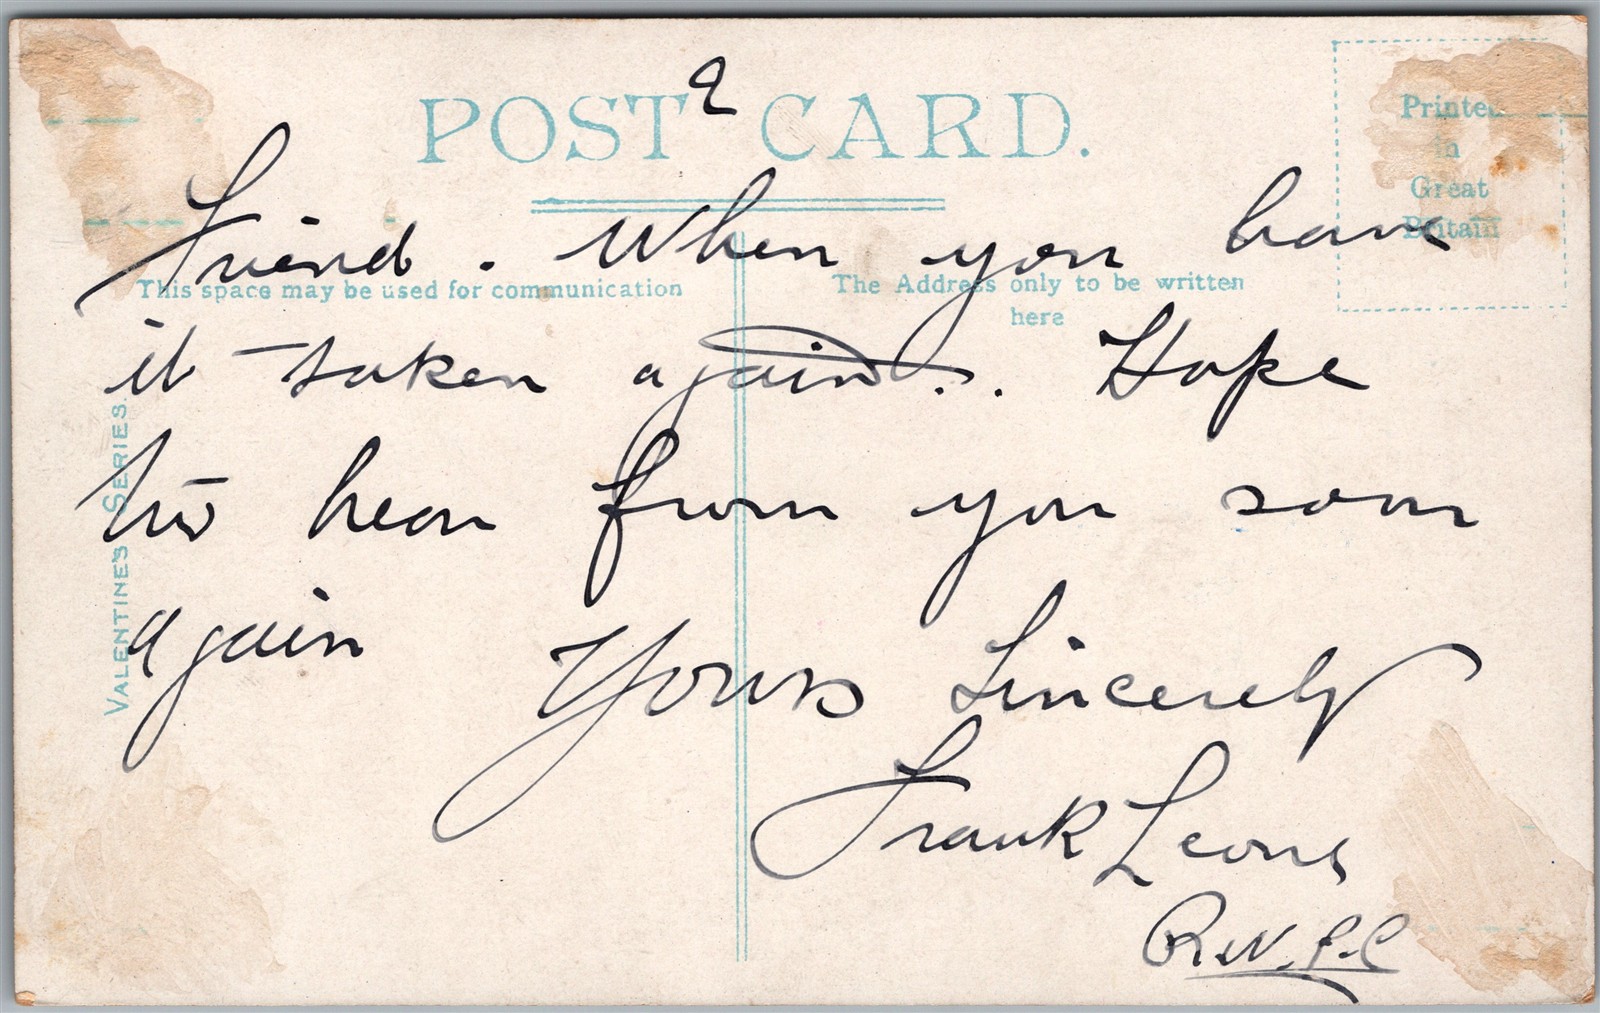 2
POST CARD.
Printed
in
Great
Britain
Friend. When you have
This space may be used for communication
The Address only to be written
here
it taken again.. Hope
to hear from you soon
again
Yours Sincerely
Frank Leons
VALENTINE'S SERIES.